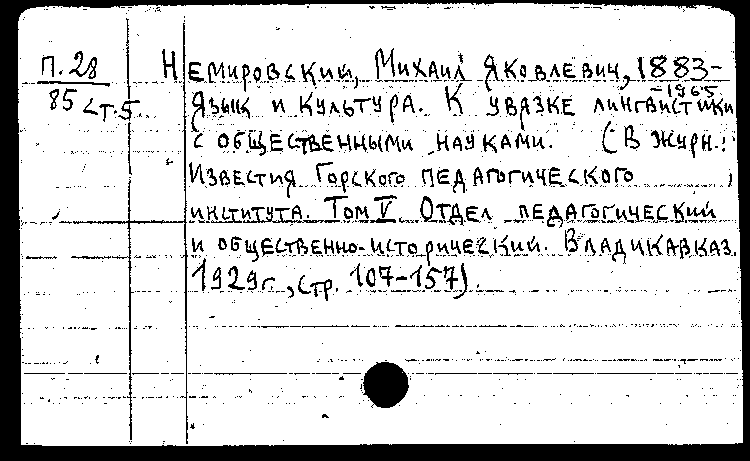 П.28
85 Ст.5
Немировский, Михаил Яковлевич, 1883-
-1965
Язык и культура. К увязке лингвистики
с общественными науками. (В журн.:
Известия Горского педагогического
института. Том V. Отдел педагогический
и общественно-исторический. Владикавказ.
1929г., стр. 107-157).